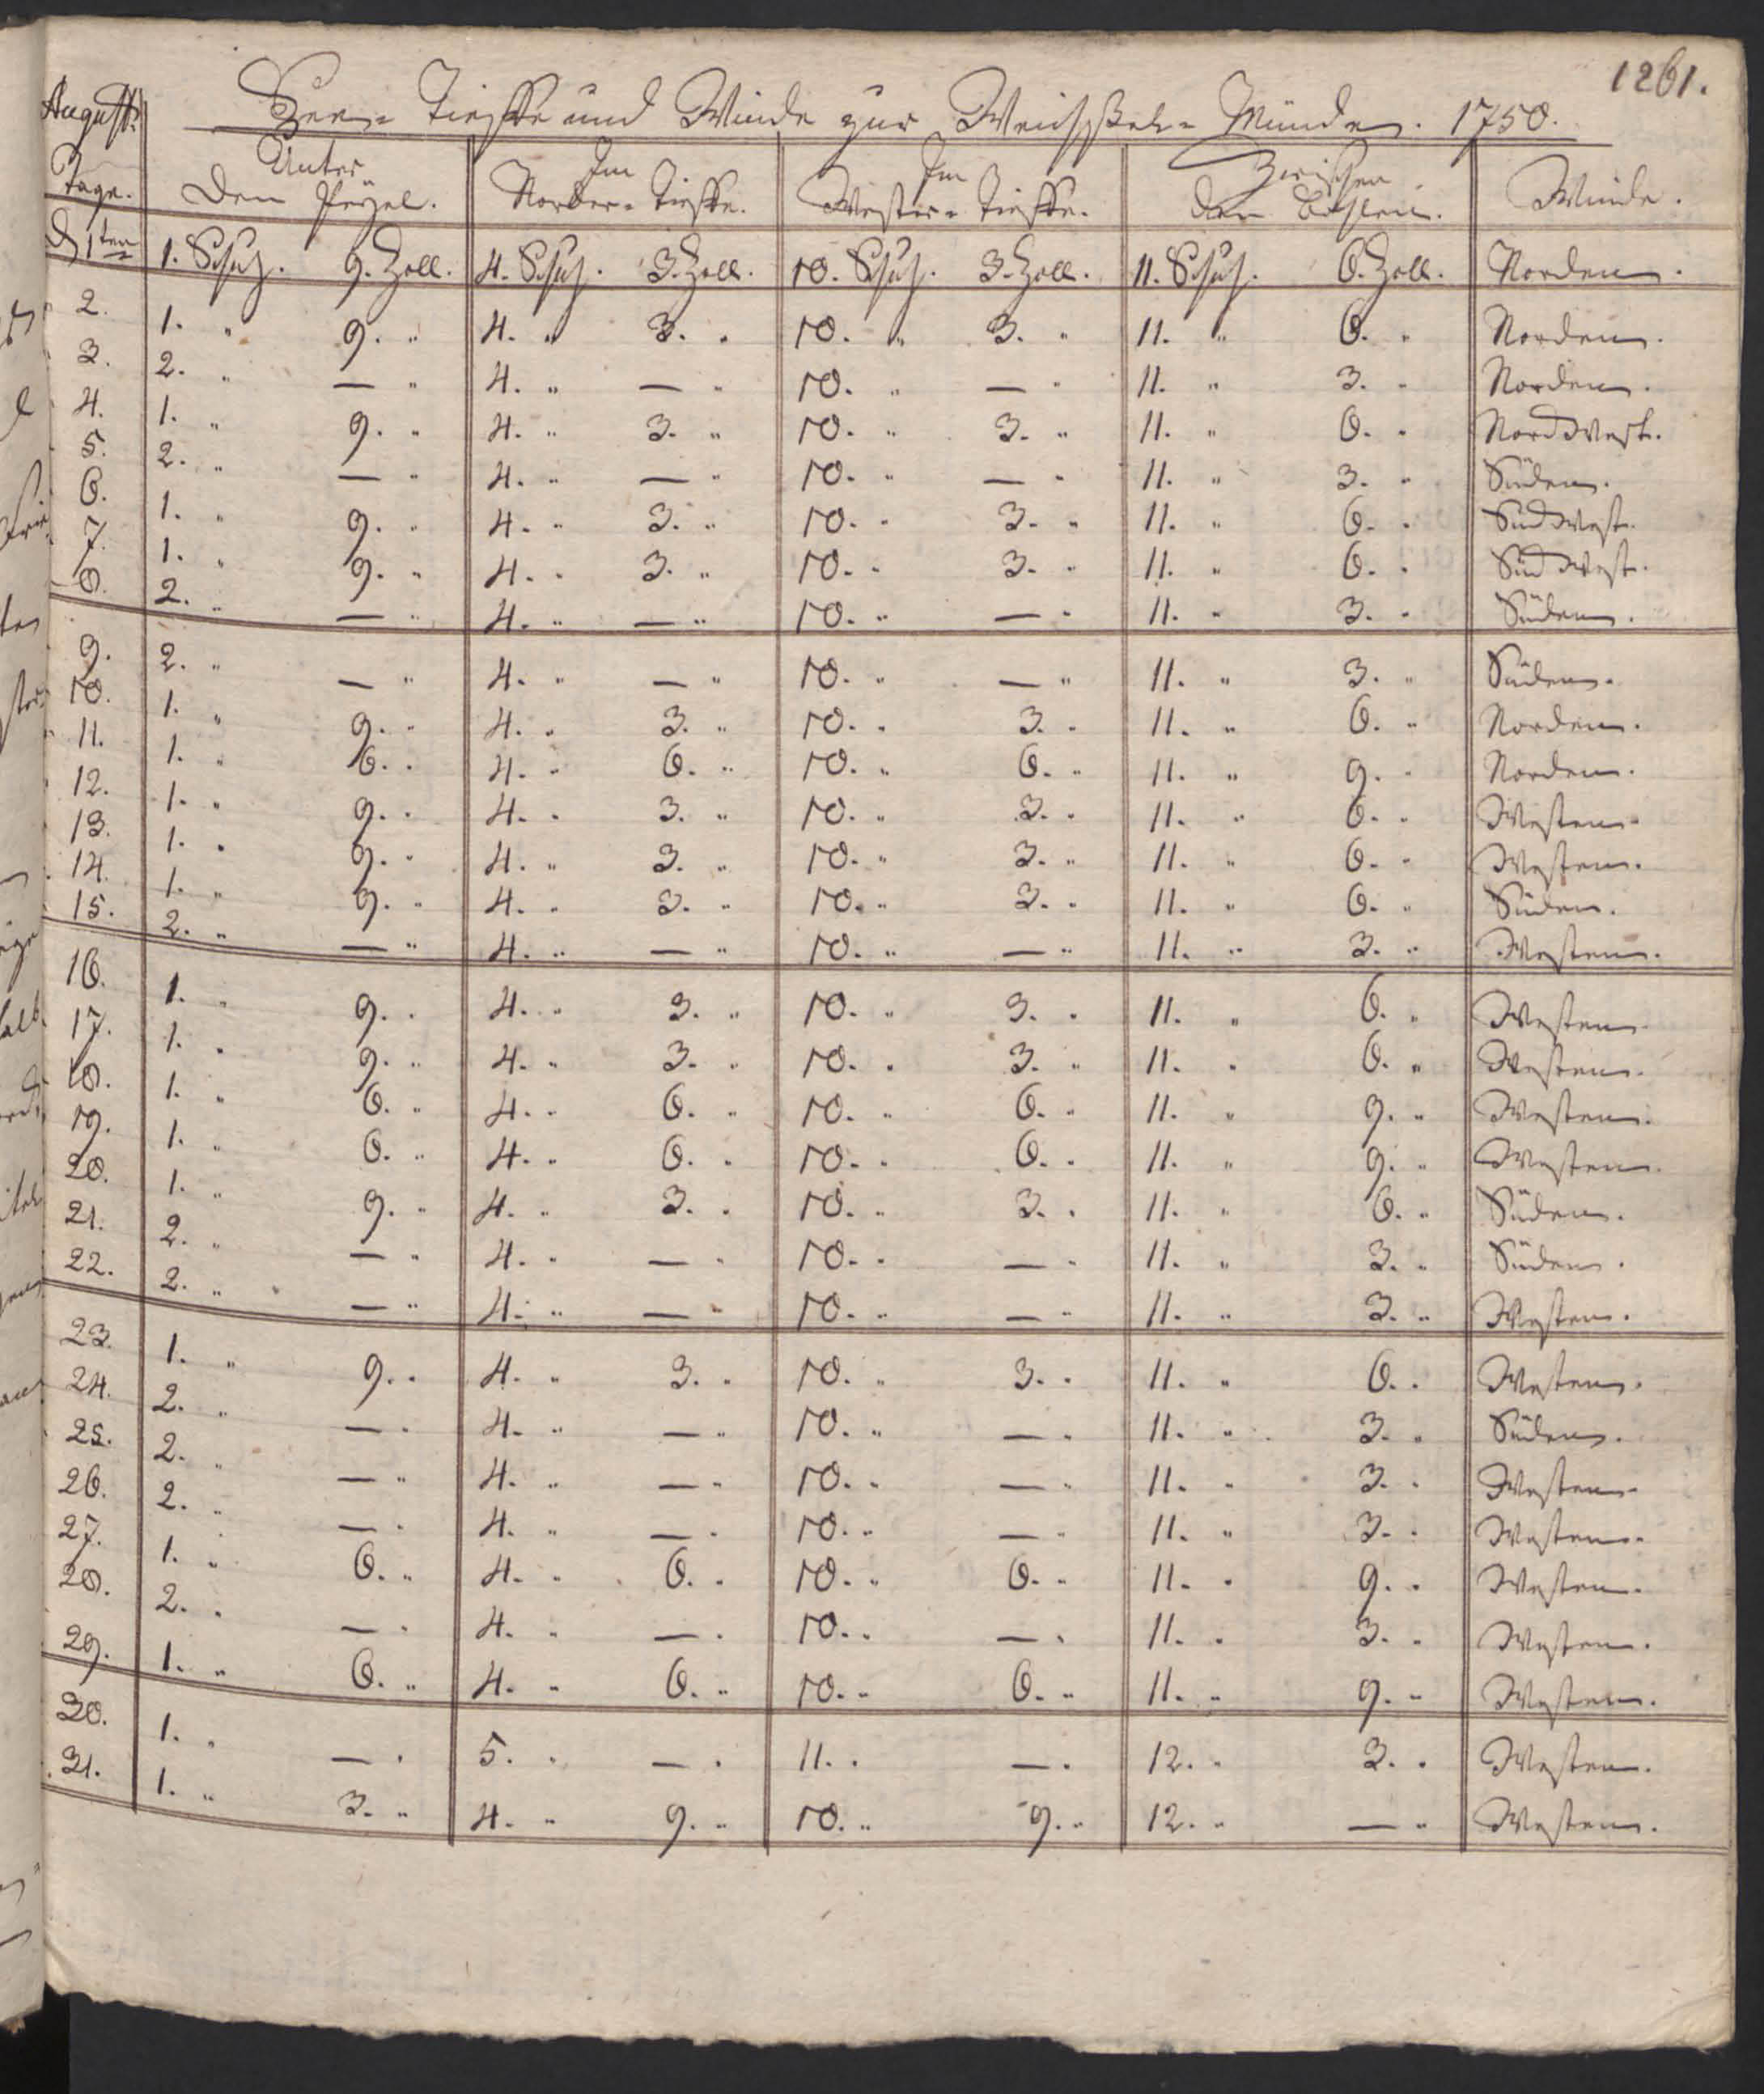 1261.
August.
See= Tieffe und Winde zur Weichßel= Münde. 1750.
Tage. Unter den Peyel. Im Norder= Tieffe. Im Wester= Tieffe. Zwischen den Bohlen. Winde.
d 1ten 1. Schuh. 9. Zoll. 4. Schuh. 3. Zoll. 10. Schuh. 3. Zoll. 11. Schuh. 6. Zoll. Norden.
2. 1. " 9. " 4. " 3. " 10. " 3. " 11. " 6. " Norden.
3. 2. " — " 4. " — " 10. " — " 11. " 3. " Norden.
4. 1. " 9. " 4. " 3. " 10. " 3. " 11. " 6. " Nord West.
5. 2. " — " 4. " — " 10. " — " 11. " 3. " Süden.
6. 1. " 9. " 4. " 3. " 10. " 3. " 11. " 6. " Süd West.
7. 1. " 9. " 4. " 3. " 10. " 3. " 11. " 6. " Süd West.
8. 2. " — " 4. " — " 10. " — " 11. " 3. " Süden.
9. 2. " — " 4. " — " 10. " — " 11. " 3. " Süden.
10. 1. " 9. " 4. " 3. " 10. " 3. " 11. " 6. " Norden.
11. 1. " 6. " 4. " 6. " 10. " 6. " 11. " 9. " Norden.
12. 1. " 9. " 4. " 3. " 10. " 3. " 11. " 6. " Westen.
13. 1. " 9. " 4. " 3. " 10. " 3. " 11. " 6. " Westen.
14. 1. " 9. " 4. " 3. " 10. " 3. " 11. " 6. " Süden.
15. 2. " — " 4. " — " 10. " — " 11. " 3. " Westen.
16. 1. " 9. " 4. " 3. " 10. " 3. " 11. " 6. " Westen.
17. 1. " 9. " 4. " 3. " 10. " 3. " 11. " 6. " Westen.
18. 1. " 6. " 4. " 6. " 10. " 6. " 11. " 9. " Westen.
19. 1. " 6. " 4. " 6. " 10. " 6. " 11. " 9. " Westen.
20. 1. " 9. " 4. " 3. " 10. " 3. " 11. " 6. " Süden.
21. 2. " — " 4. " — " 10. " — " 11. " 3. " Süden.
22. 2. " — " 4. " — " 10. " — " 11. " 3. " Westen.
23. 1. " 9. " 4. " 3. " 10. " 3. " 11. " 6. " Westen.
24. 2. " — " 4. " — " 10. " — " 11. " 3. " Süden.
25. 2. " — " 4. " — " 10. " — " 11. " 3. " Westen.
26. 2. " — " 4. " — " 10. " — " 11. " 3. " Westen.
27. 1. " 6. " 4. " 6. " 10. " 6. " 11. " 9. " Westen.
28. 2. " — " 4. " — " 10. " — " 11. " 3. " Westen.
29. 1. " 6. " 4. " 6. " 10. " 6. " 11. " 9. " Westen.
30. 1. " — " 5. " — " 11. " — " 12. " 3. " Westen.
31. 1. " 3. " 4. " 9. " 10. " 9. " 12. " — " Westen.